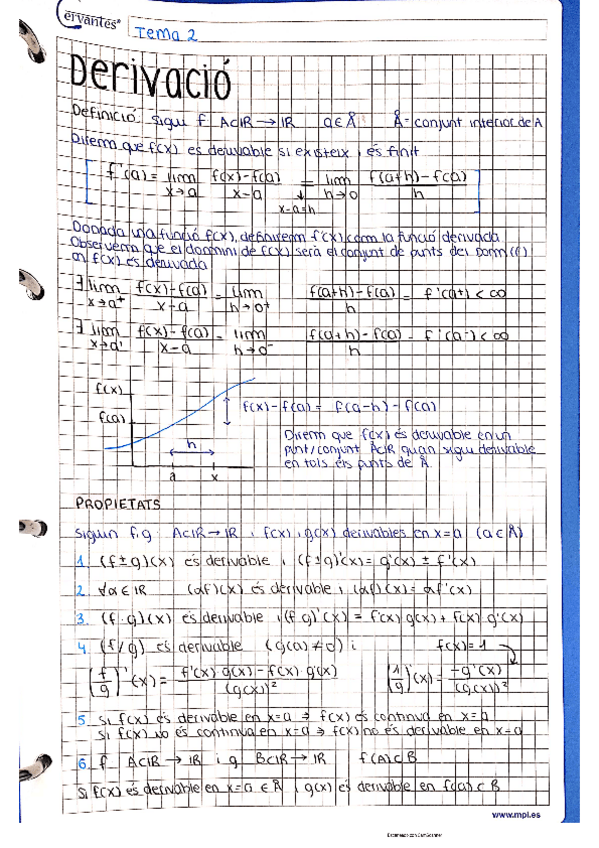 cervantes®
Tema 2
Derivació
Definició. Sigui f: A⊂ℝ → ℝ a∈Å Å = conjunt interior de A
Direm que f(x) és derivable si existeix i és finit
f'(a) = lim x→a (f(x)-f(a))/(x-a) = lim h→0 (f(a+h)-f(a))/h
x-a=h
Donada una funció f(x), definirem f'(x) com la funció derivada
Observem que el domini de f'(x) serà el conjunt de punts del Dom(f)
on f(x) és derivada
∃ lim x→a⁺ (f(x)-f(a))/(x-a) = lim h→0⁺ (f(a+h)-f(a))/h = f'(a⁺) < ∞
∃ lim x→a⁻ (f(x)-f(a))/(x-a) = lim h→0⁻ (f(a+h)-f(a))/h = f'(a⁻) < ∞
f(x)
f(a)
f(x)-f(a) = f(a-h)-f(a)
h
a x
Direm que f(x) és derivable en un
punt/conjunt A⊂ℝ quan sigui derivable
en tots els punts de Å.
PROPIETATS
Siguin f,g: A⊂ℝ → ℝ i f(x) i g(x) derivables en x=a (a∈Å)
1. (f±g)(x) és derivable i (f±g)'(x) = g'(x) ± f'(x)
2. ∀α∈ℝ (αf)(x) és derivable i (αf)'(x) = αf'(x)
3. (f·g)(x) és derivable i (f·g)'(x) = f'(x)·g(x) + f(x)·g'(x)
4. (f/g) és derivable (g(a)≠0) i f(x)=1
(f/g)'(x) = (f'(x)·g(x)-f(x)·g'(x))/(g(x))² (1/g)'(x) = -g'(x)/(g(x))²
5. Si f(x) és derivable en x=a ⇒ f(x) és contínua en x=a
Si f(x) no és contínua en x=a ⇒ f(x) no és derivable en x=a
6. f: A⊂ℝ → ℝ i g: B⊂ℝ → ℝ f(A)⊂B
Si f(x) és derivable en x=a ∈ Å i g(x) és derivable en f(a) ⊂ B
www.mpl.es
Escaneado con CamScanner